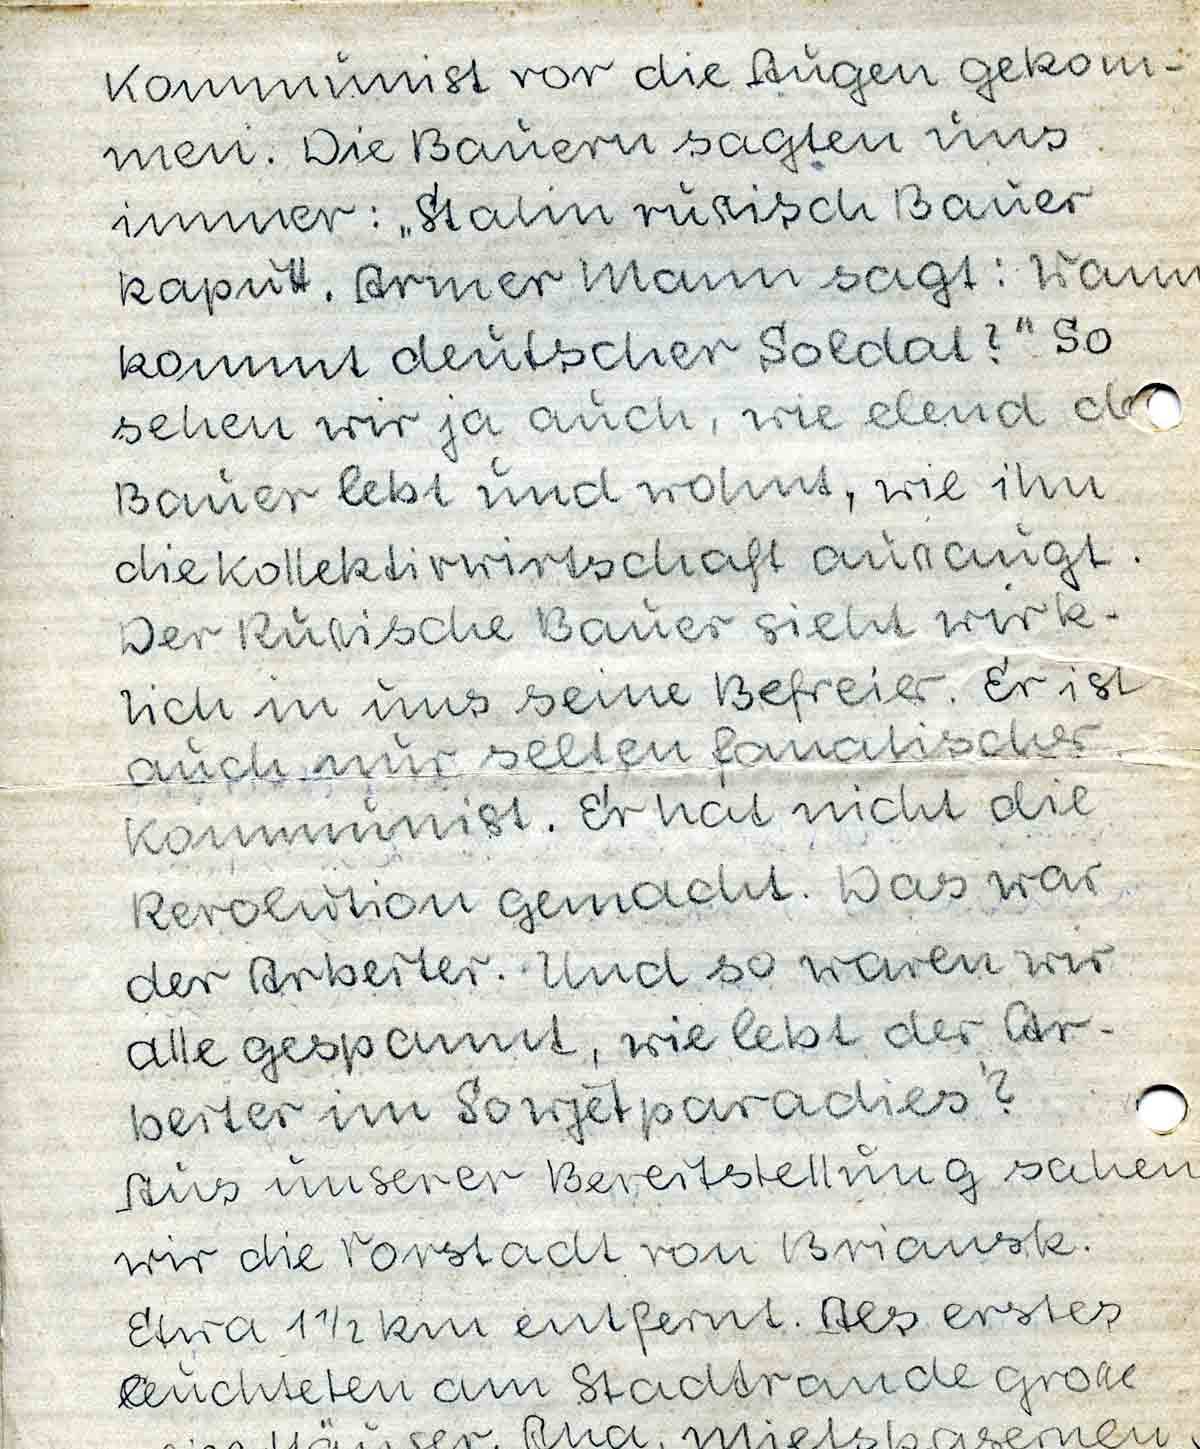 Kommunist vor die Augen gekom-
men. Die Bauern sagten uns
immer: „Stalin russisch Bauer
kaputt. Armer Mann sagt: Wann
kommt deutscher Soldat?" So
sehen wir ja auch, wie elend
Bauer lebt und wohnt, wie ihn
die Kollektivwirtschaft aussaugt.
Der Russische Bauer sieht wirk-
lich in uns seine Befreier. Er ist
auch nur selten fanatischer
Kommunist. Er hat nicht die
Revolution gemacht. Das war
der Arbeiter. Und so waren wir
alle gespannt, wie lebt der Ar-
beiter im Sowjetparadies'?
Aus unserer Bereitstellung sahen
wir die Vorstadt von Briansk.
Etwa 1 1/2 km entfernt. Als erstes
leuchteten am Stadtrande grosse
Häuser. Aha, Mietskasernen,